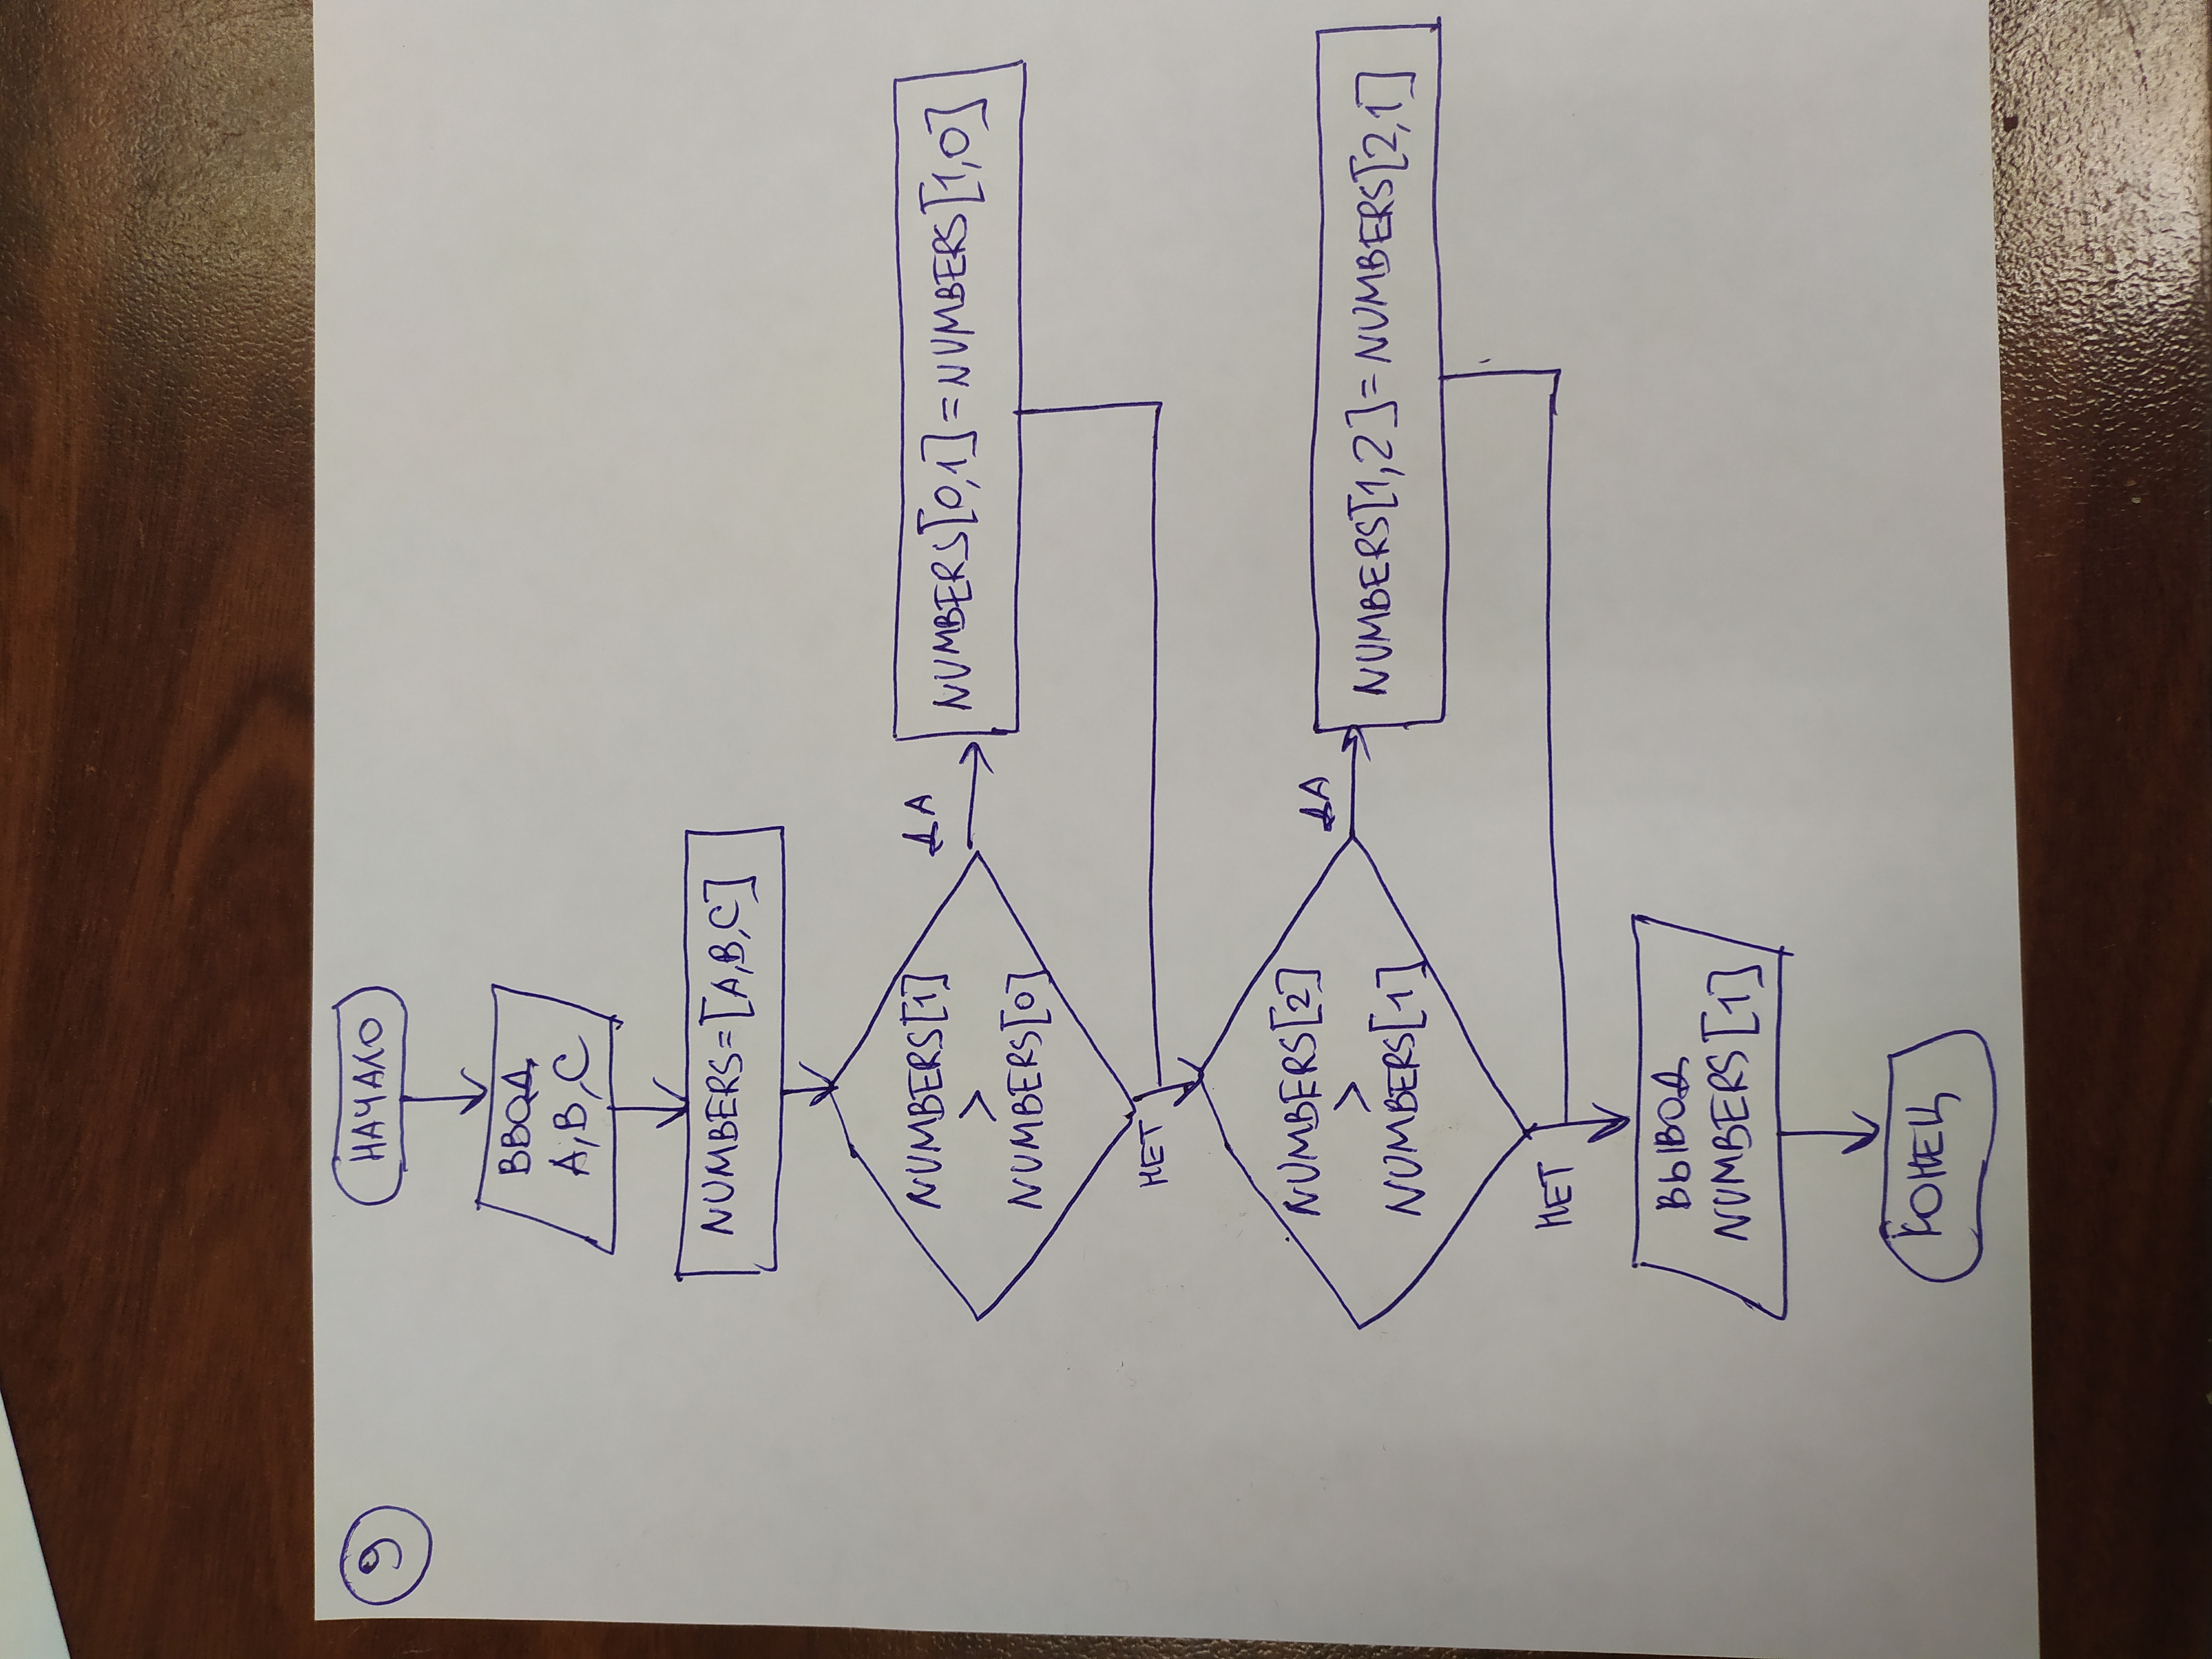 9
НАЧАЛО
ВВОД
A,B,C
NUMBERS=[A,B,C]
NUMBERS[1]
>
NUMBERS[0]
ДА
NUMBERS[0,1]=NUMBERS[1,0]
НЕТ
NUMBERS[2]
>
NUMBERS[1]
ДА
NUMBERS[1,2]=NUMBERS[2,1]
НЕТ
ВЫВОД
NUMBERS[1]
КОНЕЦ